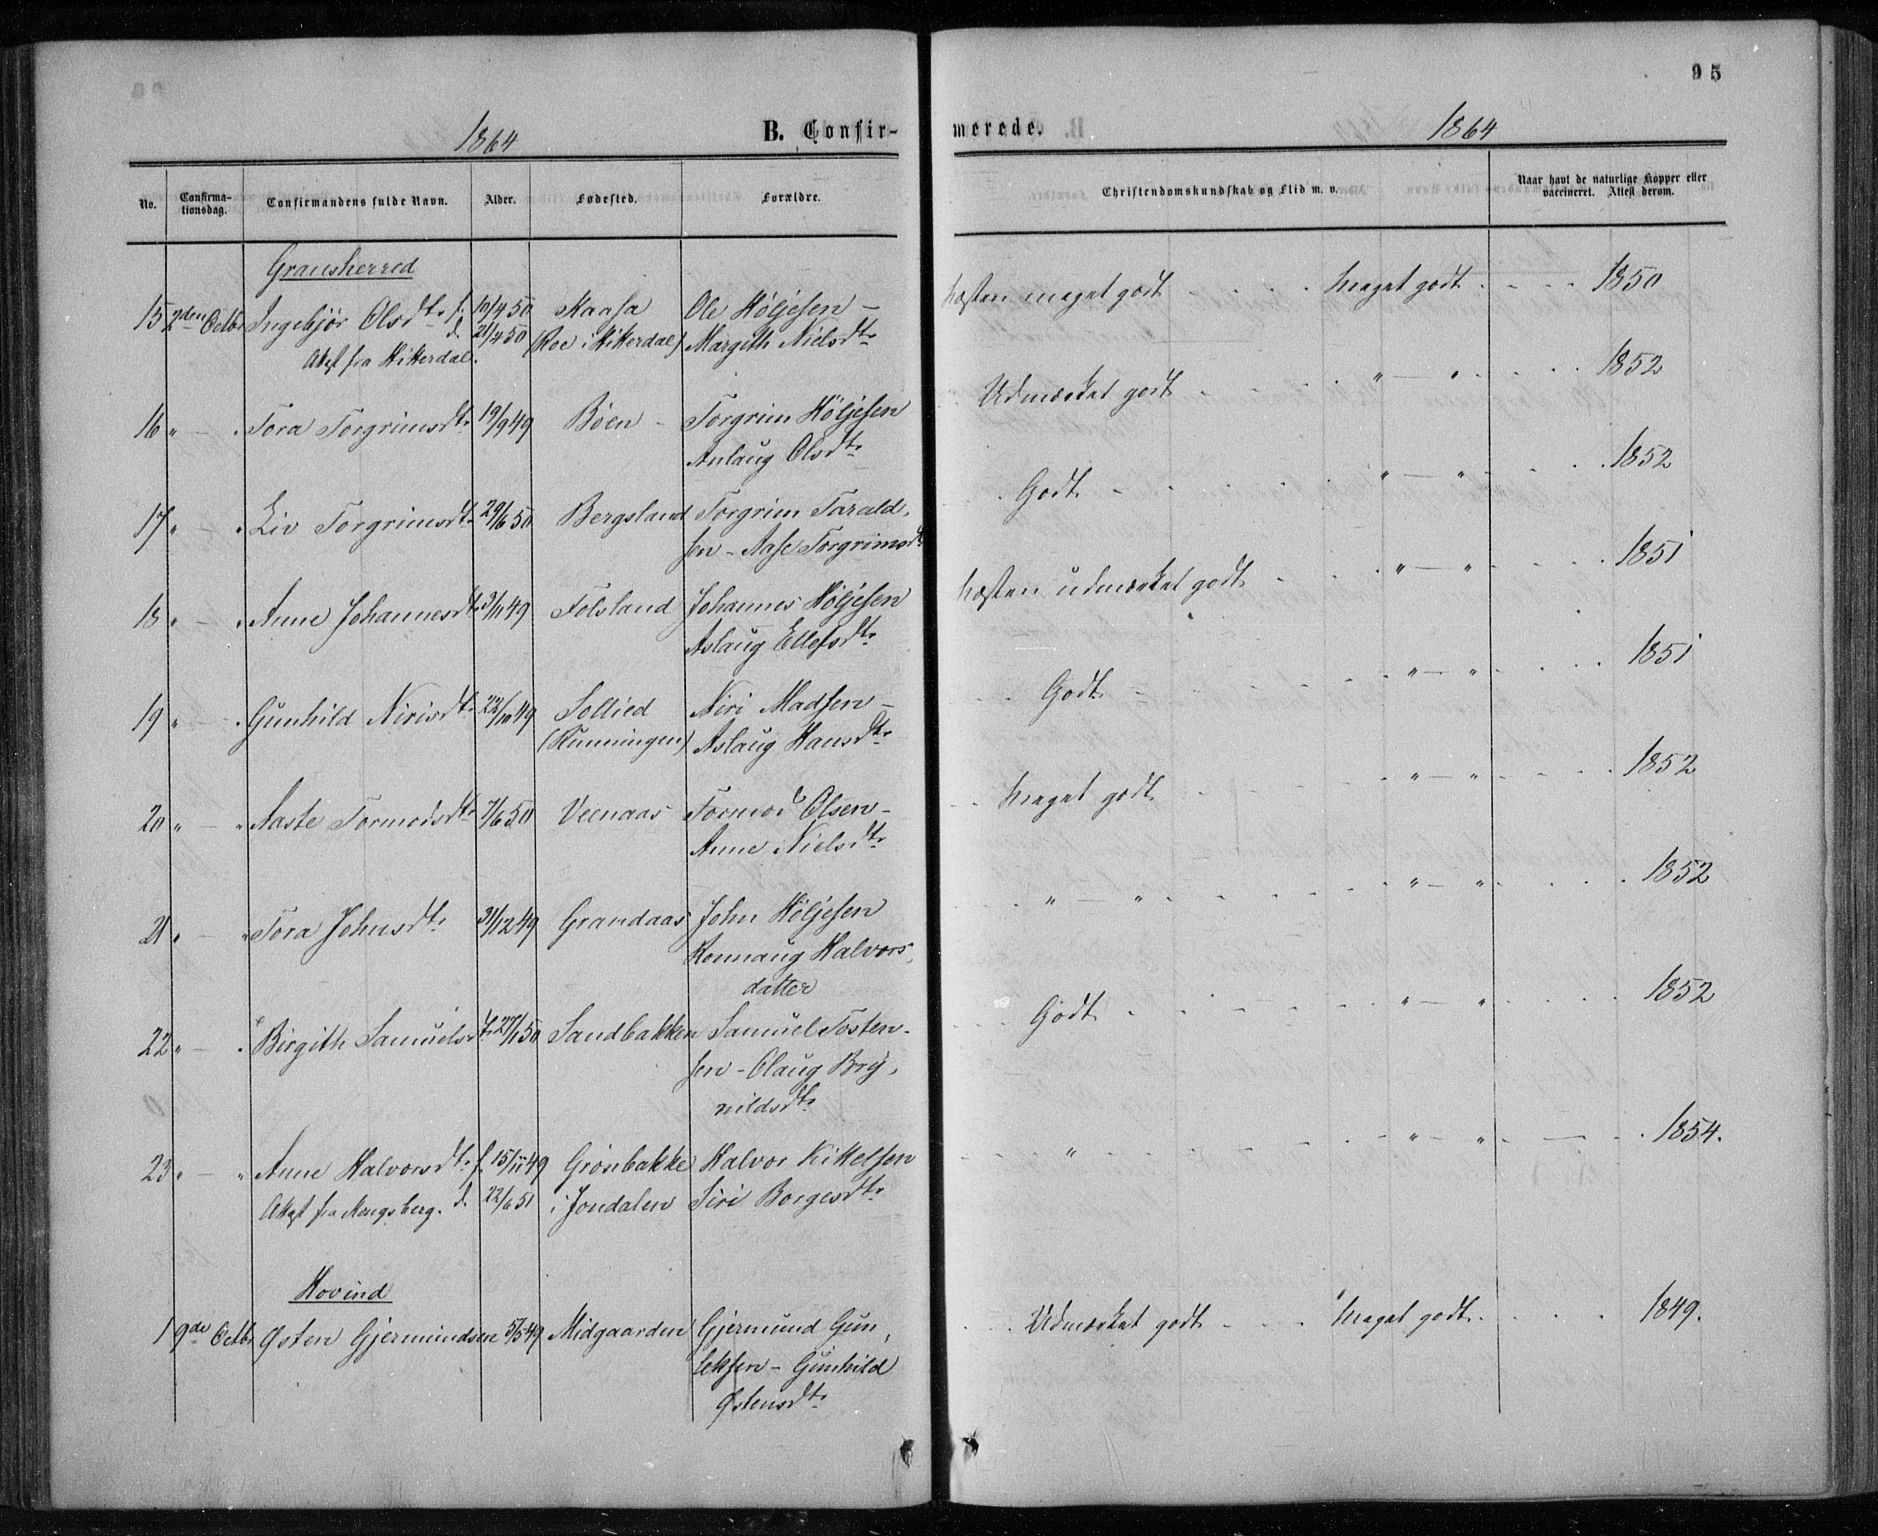 95
1864
B. Confir-
merede.
1864
No.
Confirma-
tionsdag.
Confirmandens fulde Navn.
Alder.
Fødested.
Forældre.
Christendomskundskab og Flid m. v.
Naar havt de naturlige Kopper eller
vaccineret. Attest derom.
Gransherred
15 2den Octbr Ingebjør Olsdtr f. 10/4 50 Kaasa Ole Höljesen –
d. 21/4 50 (Roe i Hitterdal) Margith Nielsdtr
Attst fra Hitterdal.
Næsten meget godt Meget godt 1850
16 " — " Tora Torgrimsdtr 19/9 49 Böen – Torgrim Höljesen
Anlaug Olsdtr
Udmærket godt " — " 1852
17 " — " Liv Torgrimsdtr 29/6 50 Bergsland Torgrim Tarald-
sen – Aase Torgrimsdtr
Godt " — " 1852
18 " — " Anne Johannesdtr 3/11 49 Folsland Johannes Höljesen
Aslaug Ellefsdtr
Næsten udmærket godt " — " 1851
19 " — " Gunhild Nirisdtr 22/10 49 Sollied Niri Madsen –
Aslaug Hansdtr
Godt " — " 1851
20 " — " Aaste Tormodsdtr 7/6 50 Veenaas Tormod Olsen –
Anne Nielsdtr
Meget godt " — " 1852
21 " — " Tora Johnsdtr 31/12 49 Grandaas John Höljesen
Ronnaug Halvors-
datter
" — " " — " 1852
22 " — " Birgith Samuelsdtr 27/1 50 Sandbakken Samuel Tosten-
sen – Olaug Bry-
nildsdtr
Godt " — " 1852
23 " — " Anne Halvorsdtr f. 15/11 49 Grönbakke Halvor Kittelsen
Attst fra Kongsberg. d. 22/6 51 i Jondalen Siri Borgesdtr
" " — " 1854.
Hovind
1 9de Octbr Østen Gjermundsen 5/5 49 Midgaarden Gjermund Gun-
leksen – Gunhild
Østensdtr
Udmærket godt Meget godt 1849.